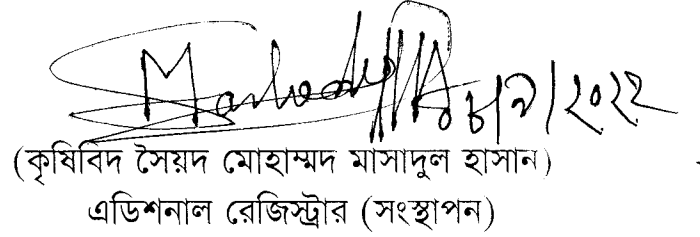 ৮/৯/২০২২
(কৃষিবিদ সৈয়দ মোহাম্মদ মাসাদুল হাসান)
এডিশনাল রেজিস্ট্রার (সংস্থাপন)